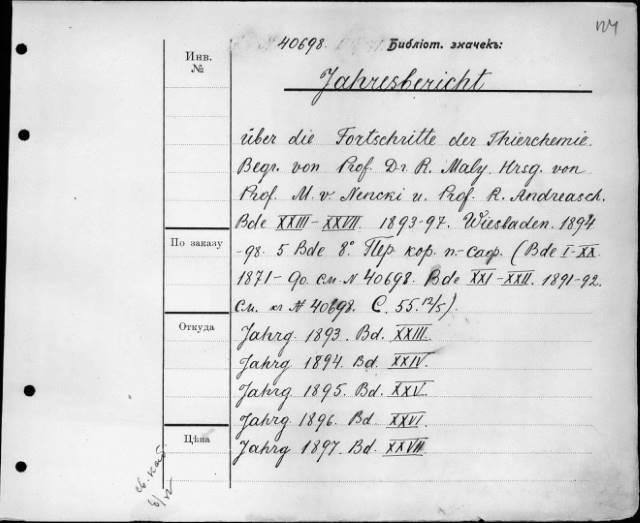 40698. Библіот. значекъ:
Инв.
№
Jahresbericht
über die Fortschritte der Thierchemie.
Begr. von Prof. Dr. R. Maly. Hrsg. von
Prof. M. v. Nencki u. Prof. R. Andreasch.
Bde XXIII-XXVII. 1893-97. Wiesbaden. 1894
По заказу
-98. 5 Bde 8°. Пер. кор. п.-саф. (Bde I-XX.
1871-90. см. N 40698. Bde XXI-XXII. 1891-92.
см. кг № 40698. С. 55.12/5).
Откуда
Jahrg. 1893. Bd. XXIII.
Jahrg. 1894. Bd. XXIV.
Jahrg. 1895. Bd. XXV.
Jahrg. 1896. Bd. XXVI.
Цѣна
Jahrg. 1897. Bd. XXVII.